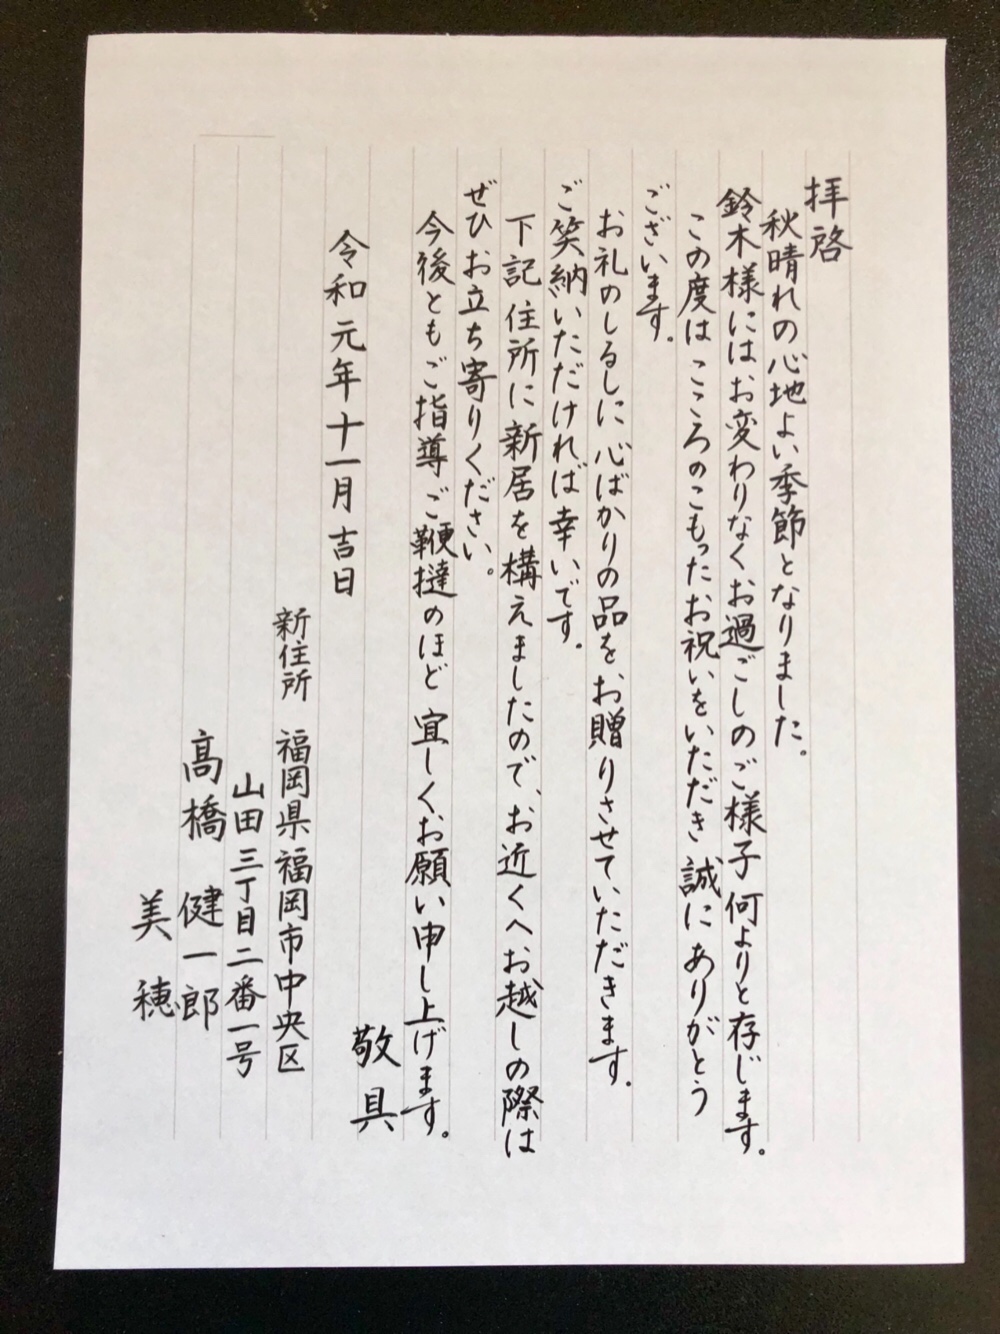 拝啓
秋晴れの心地よい季節となりました。
鈴木様にはお変わりなくお過ごしのご様子何よりと存じます。
この度はこころのこもったお祝いをいただき誠にありがとう
ございます。
お礼のしるしに心ばかりの品をお贈りさせていただきます。
ご笑納いただければ幸いです。
下記住所に新居を構えましたので、お近くへお越しの際は
ぜひお立ち寄りください。
今後ともご指導ご鞭撻のほど宜しくお願い申し上げます。
敬具
令和元年十一月吉日
新住所 福岡県福岡市中央区
山田三丁目二番一号
髙橋 健一郎
美穂